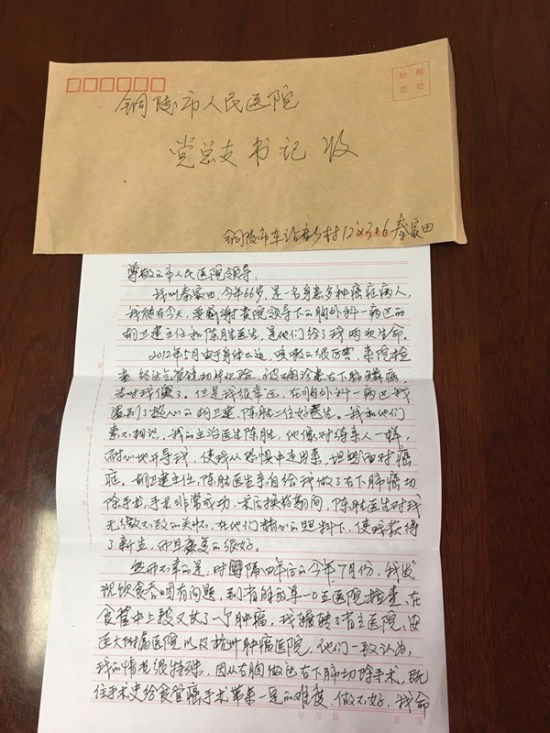 邮票
贴处
铜陵市人民医院
党总支书记 收
铜陵市车站新村12 秦家田
尊敬的市人民医院领导:
我叫秦家田,今年66岁,是一名身患多种癌症病人,
我能有今天,要感谢贵院领导下的胸外科一病区的
胡卫建主任和陈胜医生,是他们给了我两次生命。
2012年5月由于身体不适,咳嗽的很厉害,来院检
查,经过气管镜切片化验,被确诊患右下肺鳞癌,
当时我傻了。但是我很幸运,在胸外科一病区我
遇到了热心的胡卫建,陈胜二位好医生。我和他们
素不相识,我的主治医生陈胜,他像对待亲人一样,
耐心地开导我,使我从恐惧中走出来,坦然面对癌
症。胡卫建主任,陈胜医生亲自给我做了右下肺癌切
除手术,手术非常成功,术后换药期间,陈胜医生对我
无微不致的关怀,在他们精心的照料下,使我获得
了新生,而且康复的很好。
然而不幸的是,时隔四年后的今年7月份,我发
现饮食吞咽有问题,到省解放军一0五医院检查,在
食管中上段又长了一个肿瘤,我辗转了省立医院,安
医大附属医院以及杭州肿瘤医院,他们一致认为,
我的情况很特殊,因从右胸做过右下肺切除手术,既
往手术史给食管癌手术带来一定的难度,做不好,我命
年 月 日 第 页